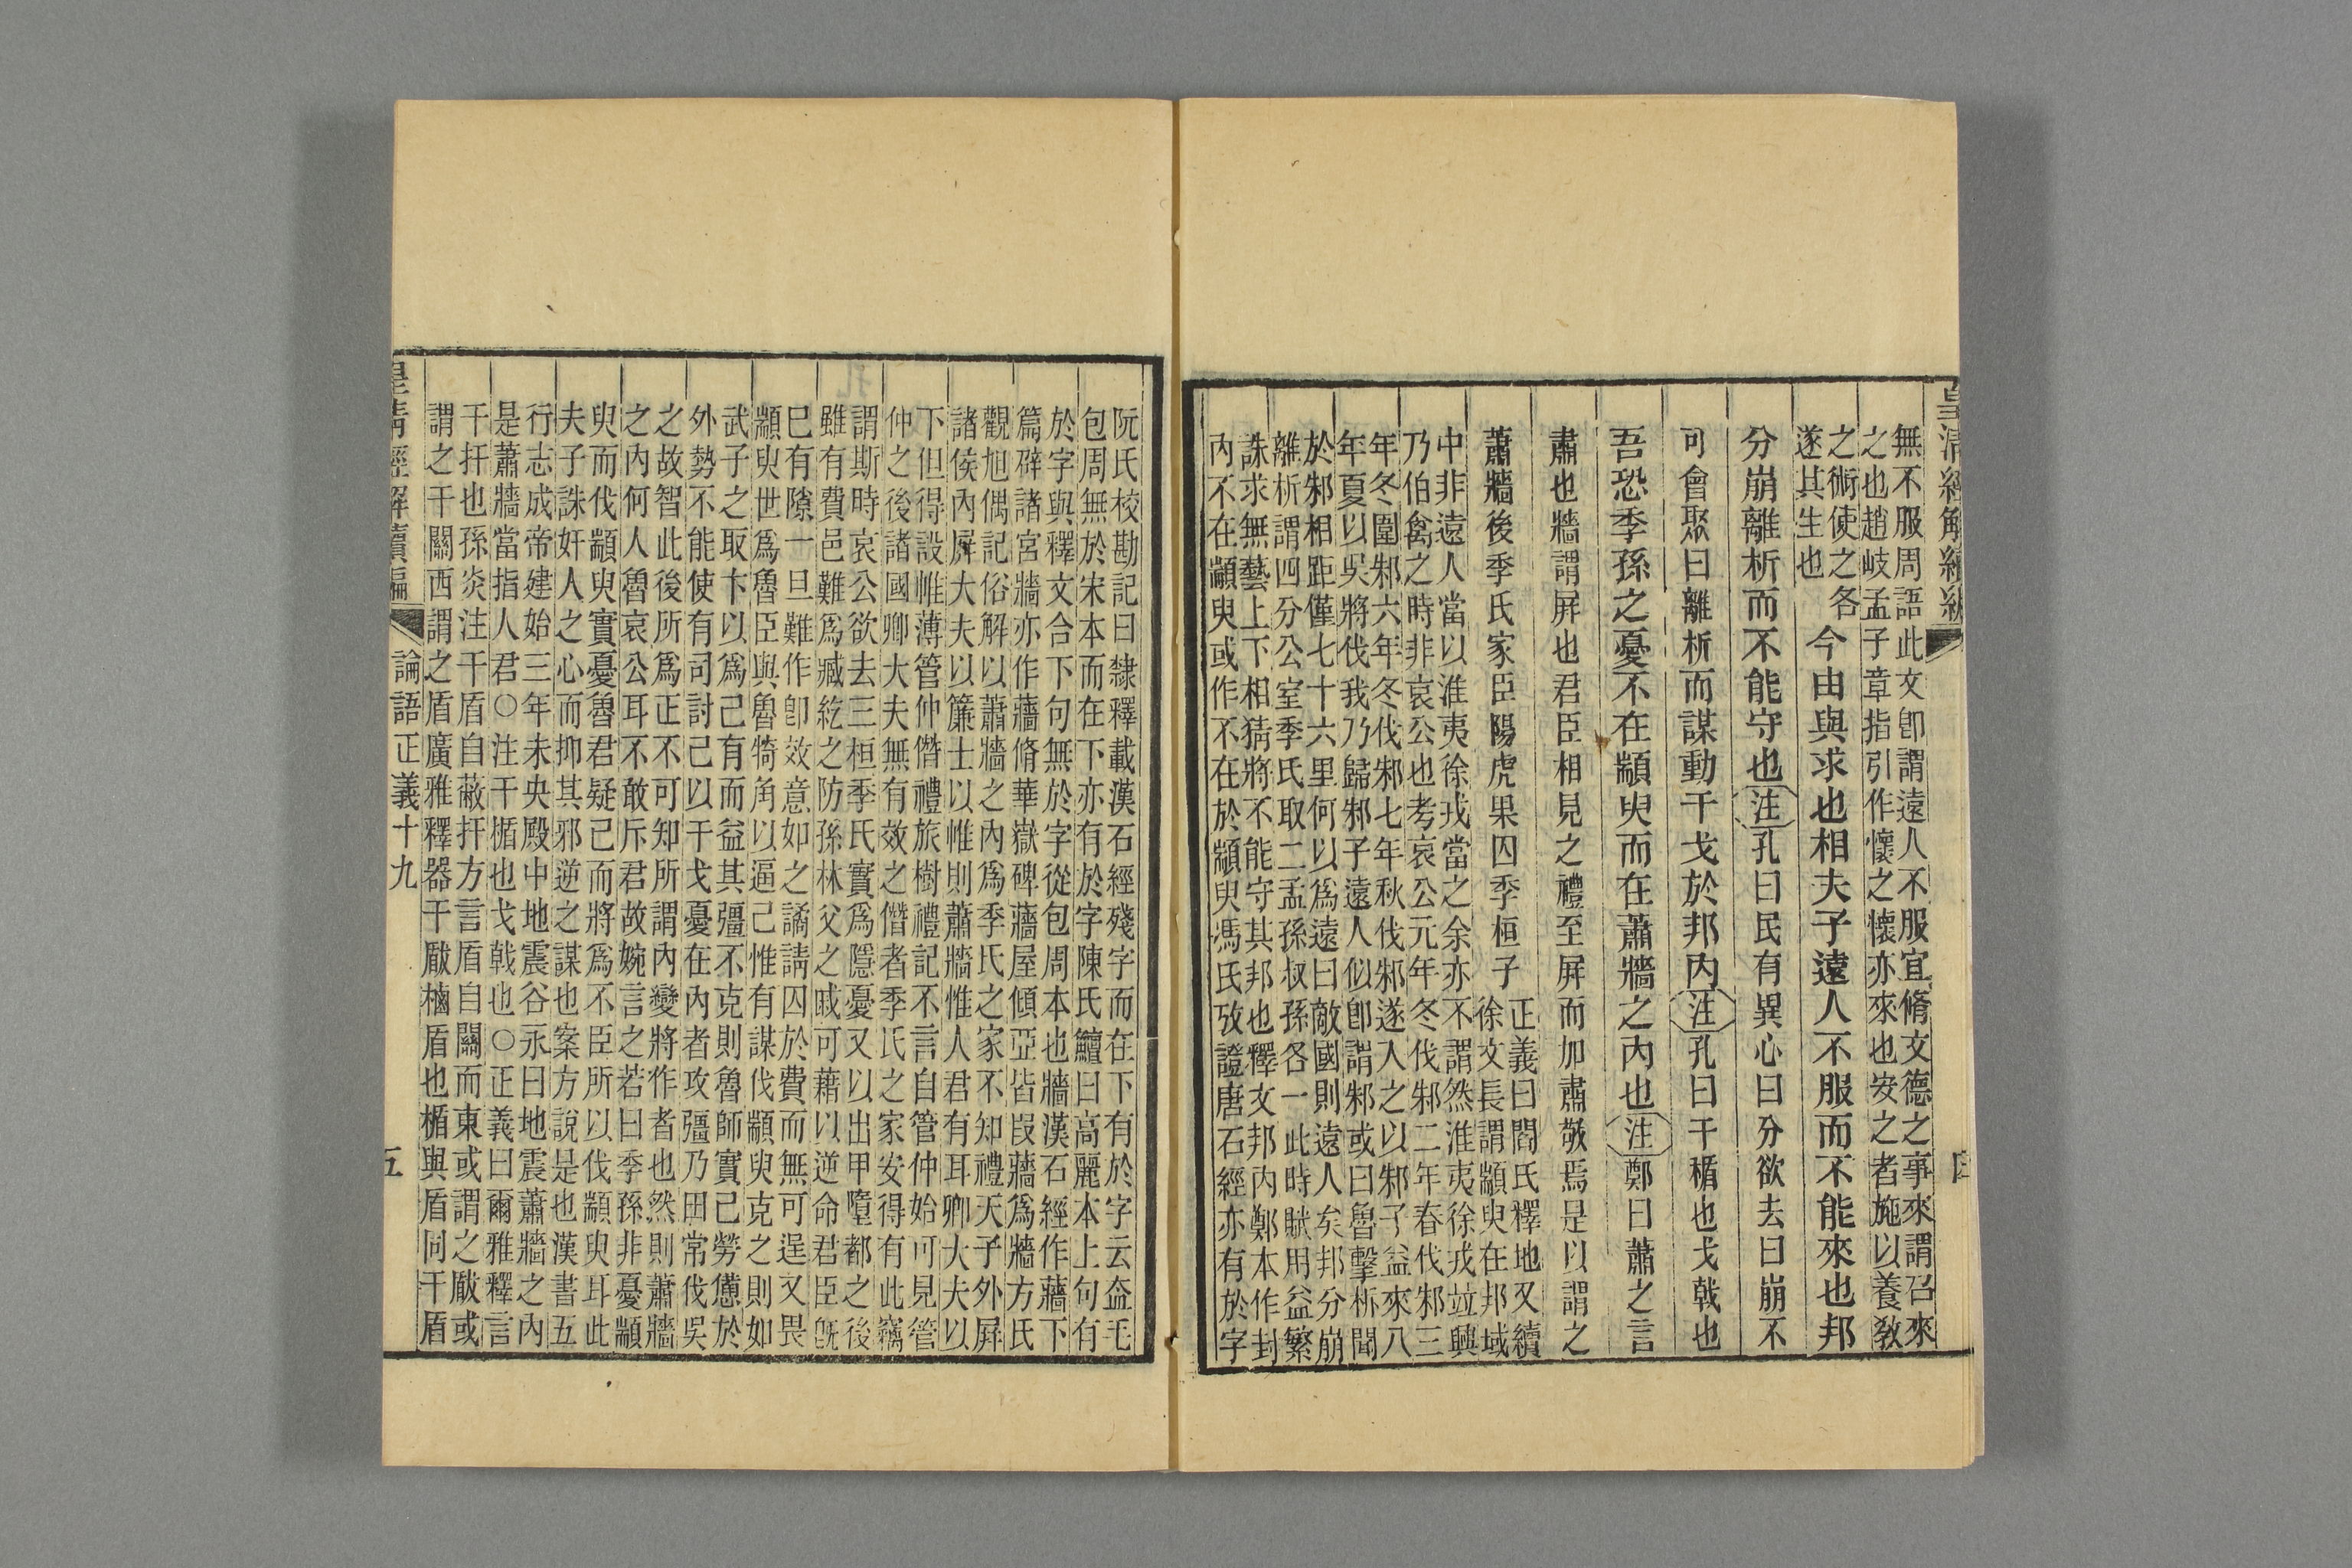 皇清經解續編
無不服周語此文卽謂遠人不服宜脩文德之事來謂召來
之也趙岐孟子章指引作懷之懷亦來也安之者施以養教
之術使之各
遂其生也
今由與求也相夫子遠人不服而不能來也邦
分崩離析而不能守也注孔曰民有異心曰分欲去曰崩不
可會聚曰離析而謀動干戈於邦內注孔曰干楯也戈戟也
吾恐季孫之憂不在顓臾而在蕭牆之內也注鄭曰蕭之言
肅也牆謂屏也君臣相見之禮至屏而加肅敬焉是以謂之
蕭牆後季氏家臣陽虎果囚季桓子
正義曰閻氏釋地又續
徐文長謂顓臾在邦域
中非遠人當以淮夷徐戎當之余亦不謂然淮夷徐戎竝興
乃伯禽之時非哀公也考哀公元年冬伐邾二年春伐邾三
年冬圍邾六年冬伐邾七年秋伐邾遂入之以邾子益來八
年夏以吳將伐我乃歸邾子遠人似卽謂邾或曰魯擊柝聞
於邾相距僅七十六里何以爲遠曰敵國則遠人矣邦分崩
離析謂四分公室季氏取二孟孫叔孫各一此時賦用益繁
誅求無藝上下相猜將不能守其邦也釋文邦內鄭本作封
內不在顓臾或作不在於顓臾馮氏攷證唐石經亦有於字
阮氏校勘記曰隸釋載漢石經殘字而在下有於字云盍毛
包周無於宋本而在下亦有於字陳氏鱣曰高麗本上句有
於字與釋文合下句無於字從包周本也牆漢石經作蘠下
篇辟諸宮牆亦作蘠脩華嶽碑蘠屋傾亞皆叚蘠爲牆方氏
觀旭偶記俗解以蕭牆之內爲季氏之家不知禮天子外屏
諸侯內屏大夫以簾士以帷則蕭牆惟人君有耳卿大夫以
下但得設帷薄管仲僭禮旅樹禮記不言自管仲始可見管
仲之後諸國卿大夫無有效之僭者季氏之家安得有此竊
謂斯時哀公欲去三桓季氏實爲隱憂又以出甲墮都之後
雖有費邑難爲臧紇之防孫林父之戚可藉以逆命君臣旣
巳有隙一旦難作卽效意如之譎請囚於費而無可逞又畏
顓臾世爲魯臣與魯犄角以逼己惟有謀伐顓臾克之則如
武子之取卞以爲己有而益其彊不克則魯師實己勞憊於
外勢不能使有司討己以干戈憂在內者攻彊乃田常伐吳
之故智此後所爲正不可知所謂內變將作者也然則蕭牆
之內何人魯哀公耳不敢斥君故婉言之若曰季孫非憂顓
臾而伐顓臾實憂魯君疑己而將爲不臣所以伐顓臾耳此
夫子誅奸人之心而抑其邪逆之謀也案方說是也漢書五
行志成帝建始三年未央殿中地震谷永曰地震蕭牆之內
是蕭牆當指人君○注干楯也戈戟也○正義曰爾雅釋言
干扞也孫炎注干盾自蔽扞方言盾自關而東或謂之瞂或
謂之干關西謂之盾廣雅釋器干瞂樐盾也楯與盾同干盾
皇清經解續編 論語正義十九 五